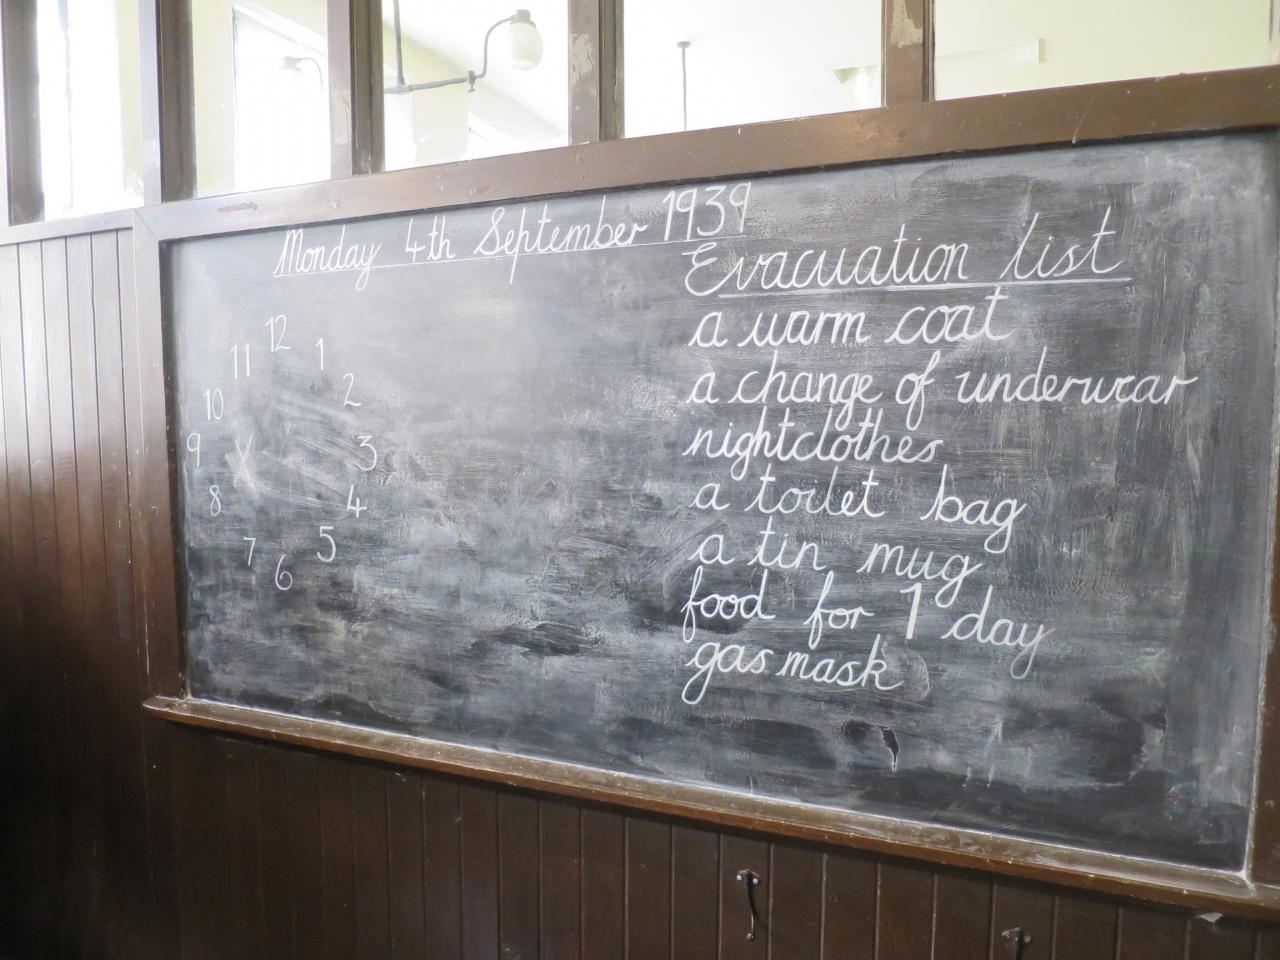 Monday 4th September 1939
Evacuation list
a warm coat
a change of underwear
nightclothes
a toilet bag
a tin mug
food for 1 day
gas mask
12
11
1
10
2
9
3
8
4
7
5
6